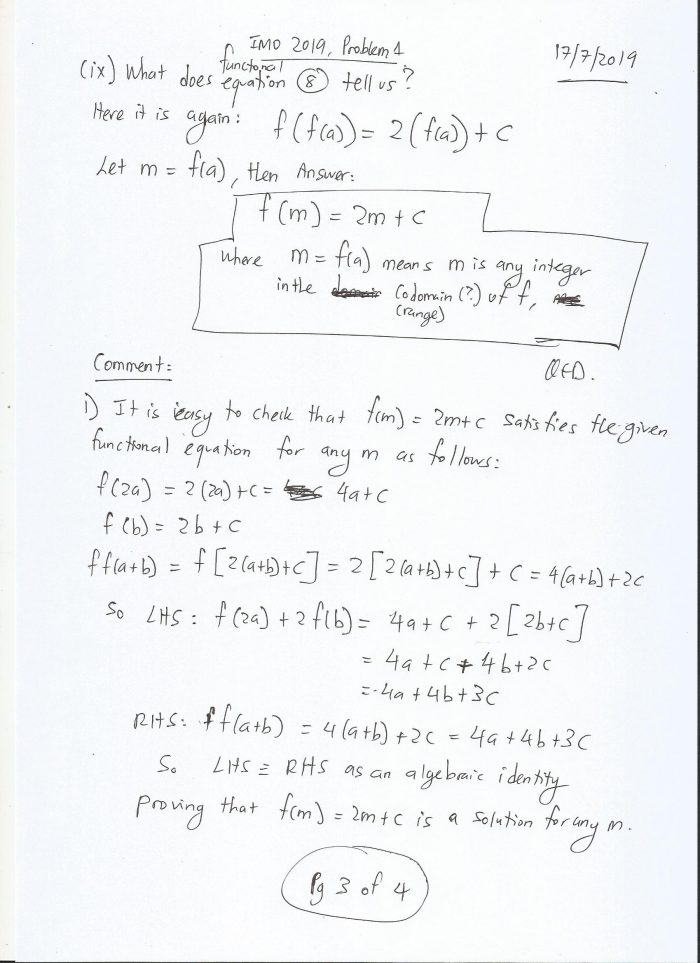 IMO 2019, Problem 1
17/7/2019
(ix) What does functional equation ⑧ tell us?
Here it is again: f(f(a)) = 2(f(a)) + c
Let m = f(a), then Answer:
f(m) = 2m + c
where m = f(a) means m is any integer
in the codomain (?) of f,
(range)
QED.
Comment:
1) It is easy to check that f(m) = 2m+c satisfies the given
functional equation for any m as follows:
f(2a) = 2(2a)+c = 4a+c
f(b) = 2b+c
ff(a+b) = f[2(a+b)+c] = 2[2(a+b)+c] + c = 4(a+b)+2c
So LHS: f(2a) + 2f(b) = 4a+c + 2[2b+c]
= 4a+c + 4b+2c
= 4a+4b+3c
RHS: ff(a+b) = 4(a+b)+2c = 4a+4b+3c
So LHS ≡ RHS as an algebraic identity
proving that f(m) = 2m+c is a solution for any m.
Pg 3 of 4